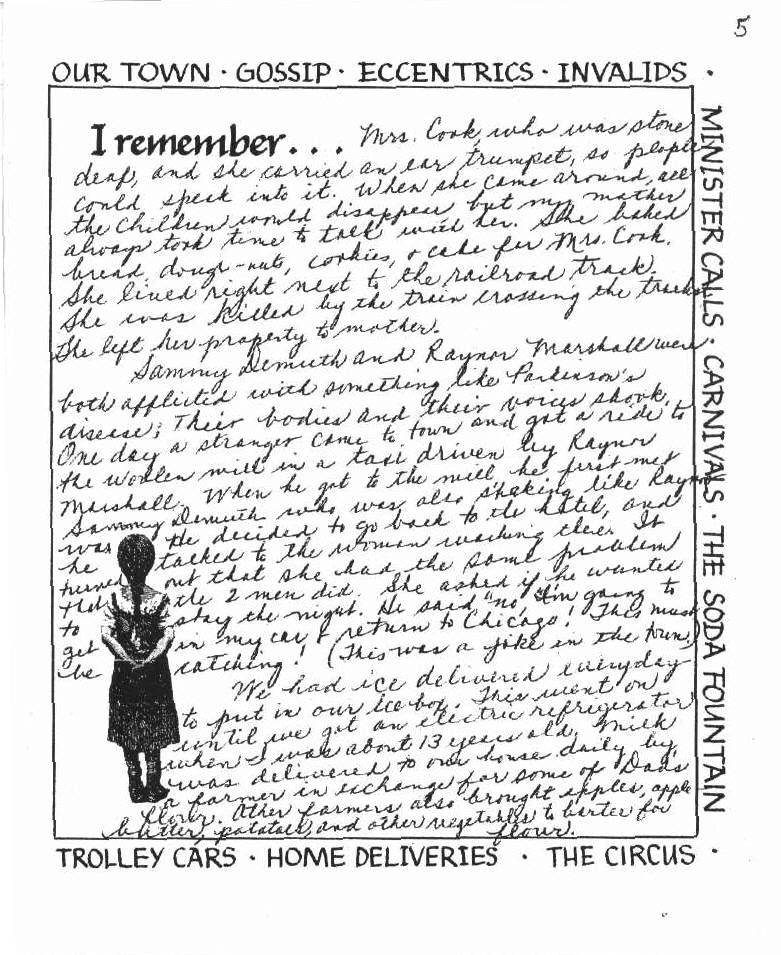 5
OUR TOWN · GOSSIP · ECCENTRICS · INVALIDS ·
MINISTER CALLS · CARNIVALS · THE SODA FOUNTAIN
I remember... Mrs. Cook, who was stone
deaf, and she carried an ear trumpet, so people
could speak into it. When she came around, all
the children would disappear but my mother
always took time to talk with her. She baked
bread, dough-nuts, cookies, & cake for Mrs. Cook.
She lived right next to the railroad track.
She was killed by the train crossing the tracks.
She left her property to mother.
Sammy Demuth and Raynor Marshall were
both afflicted with something like Parkinson's
disease; Their bodies and their voices shook.
One day a stranger came to town and got a ride to
the woolen mill in a taxi driven by Raynor
Marshall. When he got to the mill he first met
Sammy Demuth who was also shaking like Raynor
was. He decided to go back to the hotel, and
he talked to the woman working there. It
turned out that she had the same problem
that the 2 men did. She asked if he wanted
to stay the night. He said, "no, I'm going to
get in my car & return to Chicago! This must
be catching! (This was a joke in the town.)
We had ice delivered everyday
to put in our ice box. This went on
until we got an electric refrigerator
when I was about 13 years old. Milk
was delivered to our house daily by
a farmer in exchange for some of Dad's
flour. Other farmers also brought apples, apple
butter, potatoes, and other vegetables to barter for
flour.
TROLLEY CARS · HOME DELIVERIES · THE CIRCUS ·